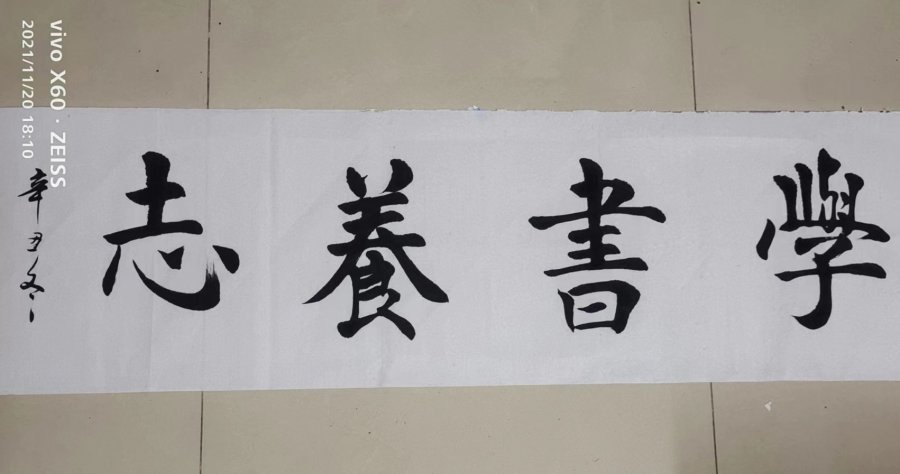 學書養志
辛丑冬
vivo X60 · ZEISS
2021/11/20 18:10